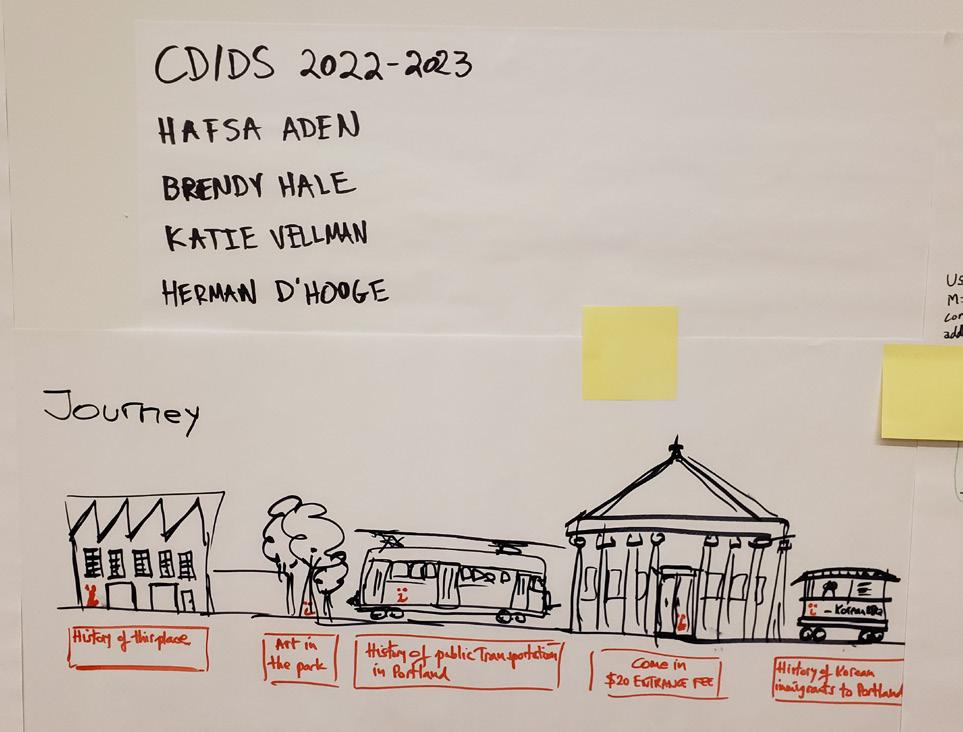 CDIDS 2022-2023
HAFSA ADEN
BRENDY HALE
KATIE VELLMAN
HERMAN D'HOOGE
Journey
i - Korean BBQ
History of this place
Art in
the park
History of public Transportation
in Portland
Come in
$20 ENTRANCE FEE
History of Korean
immigrants to Portland